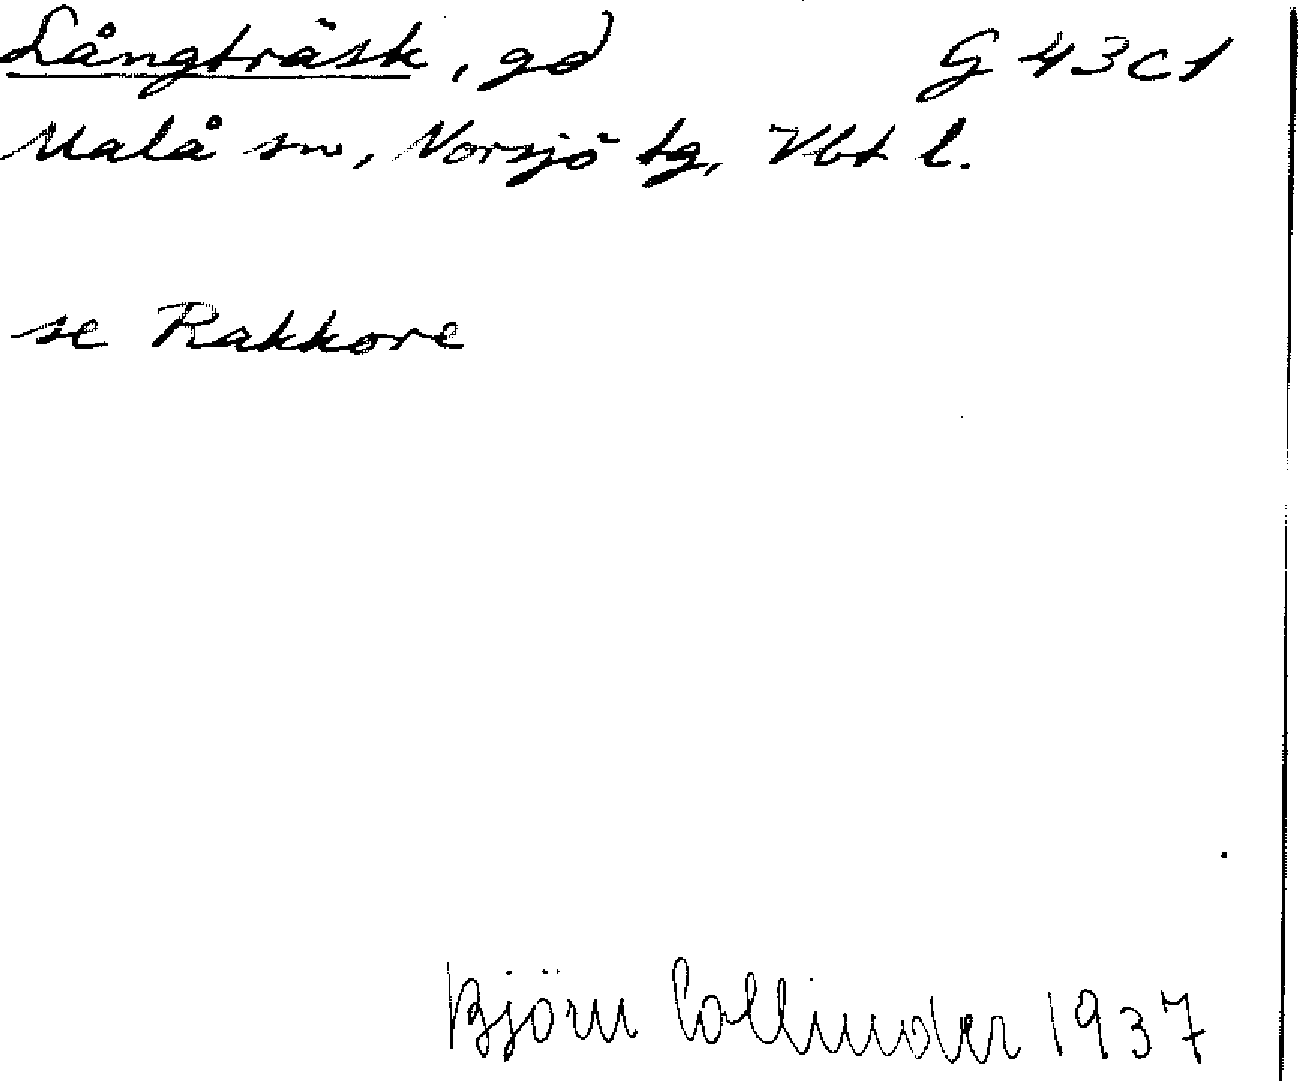 Långträsk, gd G 43c1
Malå sn, Norsjö tg, Vbt l.
se Rakkore
Björn Collinder 1937